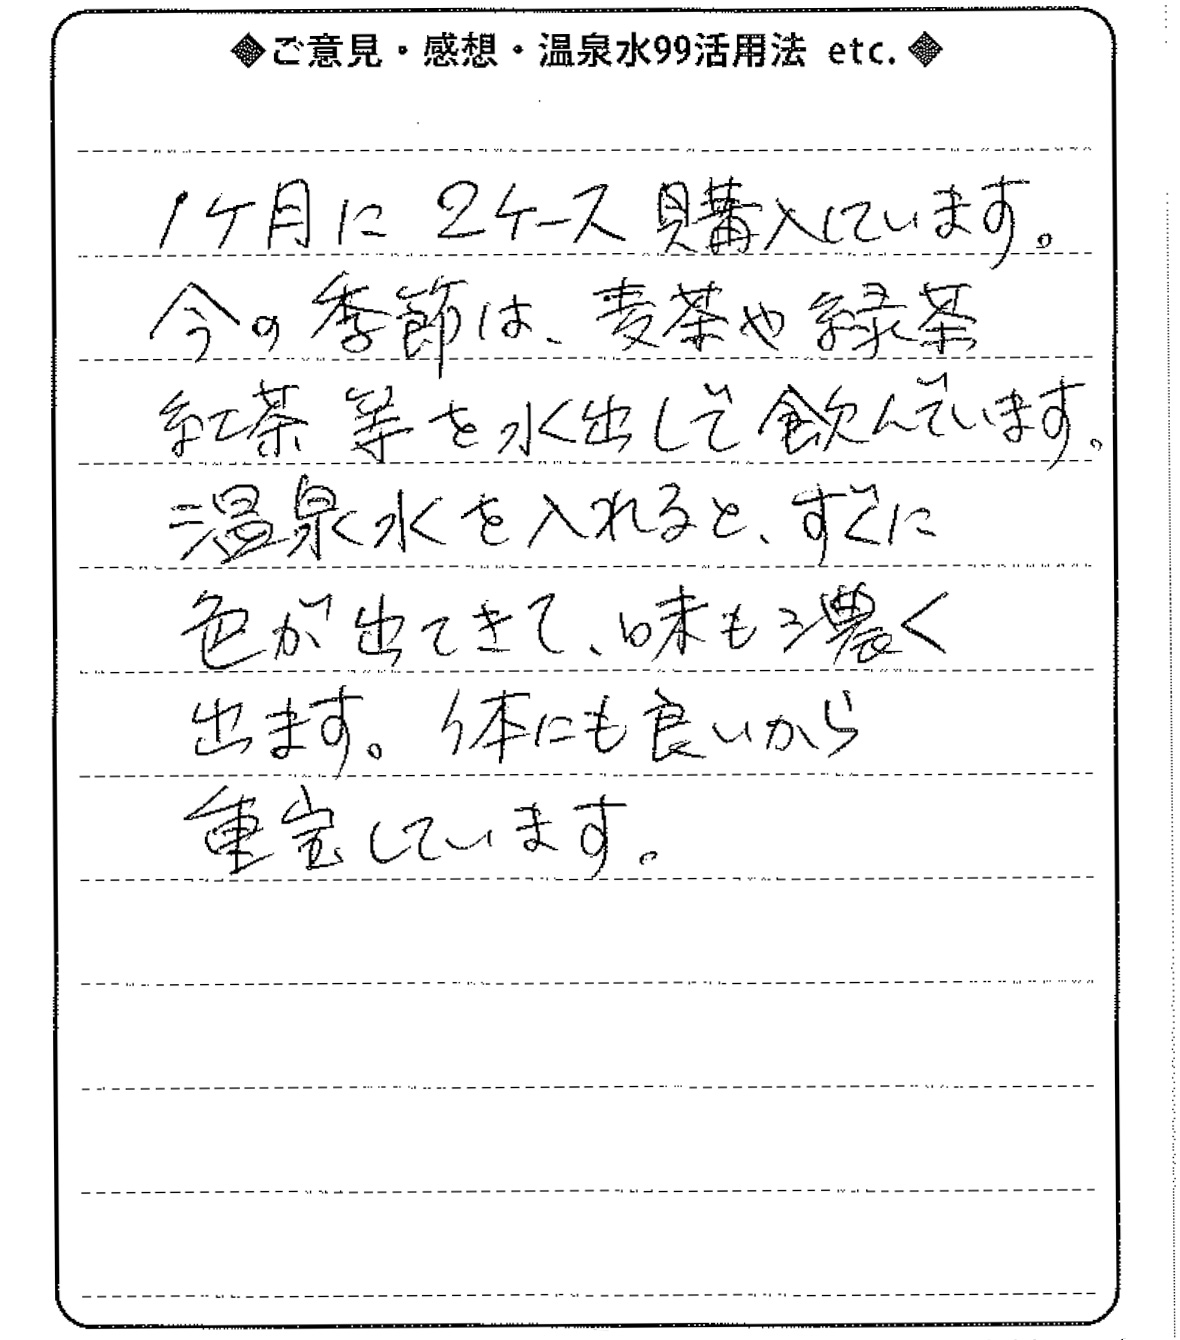 ◆ご意見・感想・温泉水99活用法 etc.◆
1ケ月に 2ケース 購入しています。
今の季節は、麦茶や緑茶
紅茶 等を水出しで飲んでいます。
温泉水を入れると、すぐに
色が出てきて、味も濃く
出ます。体にも良いから
重宝しています。